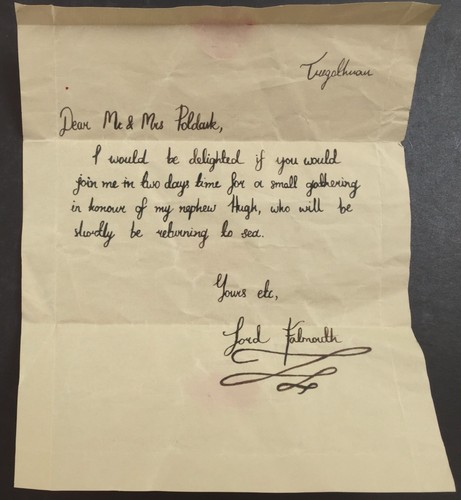 Tregothnan
Dear Mr & Mrs Poldark,
I would be delighted if you would
join me in two days time for a small gathering
in honour of my nephew Hugh, who will be
shortly be returning to sea.
Yours etc,
Lord Falmouth